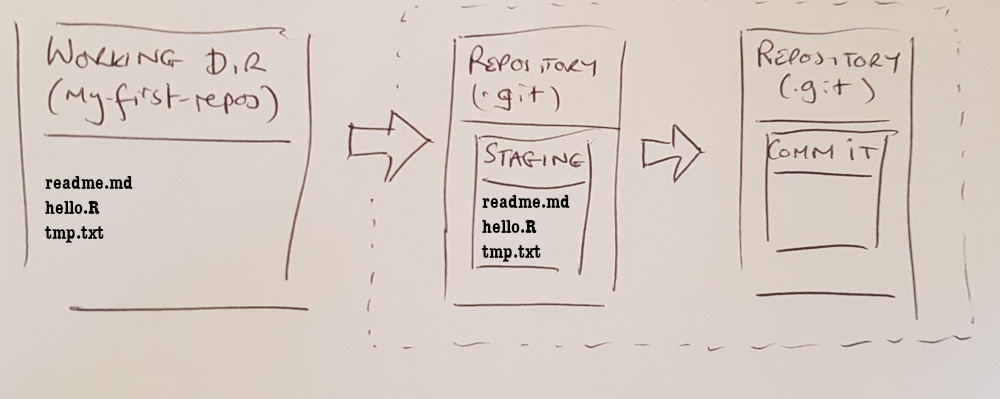 WORKING DIR
(My-first-repos)
readme.md
hello.R
tmp.txt
REPOSITORY
(.git)
STAGING
readme.md
hello.R
tmp.txt
REPOSITORY
(.git)
COMMIT